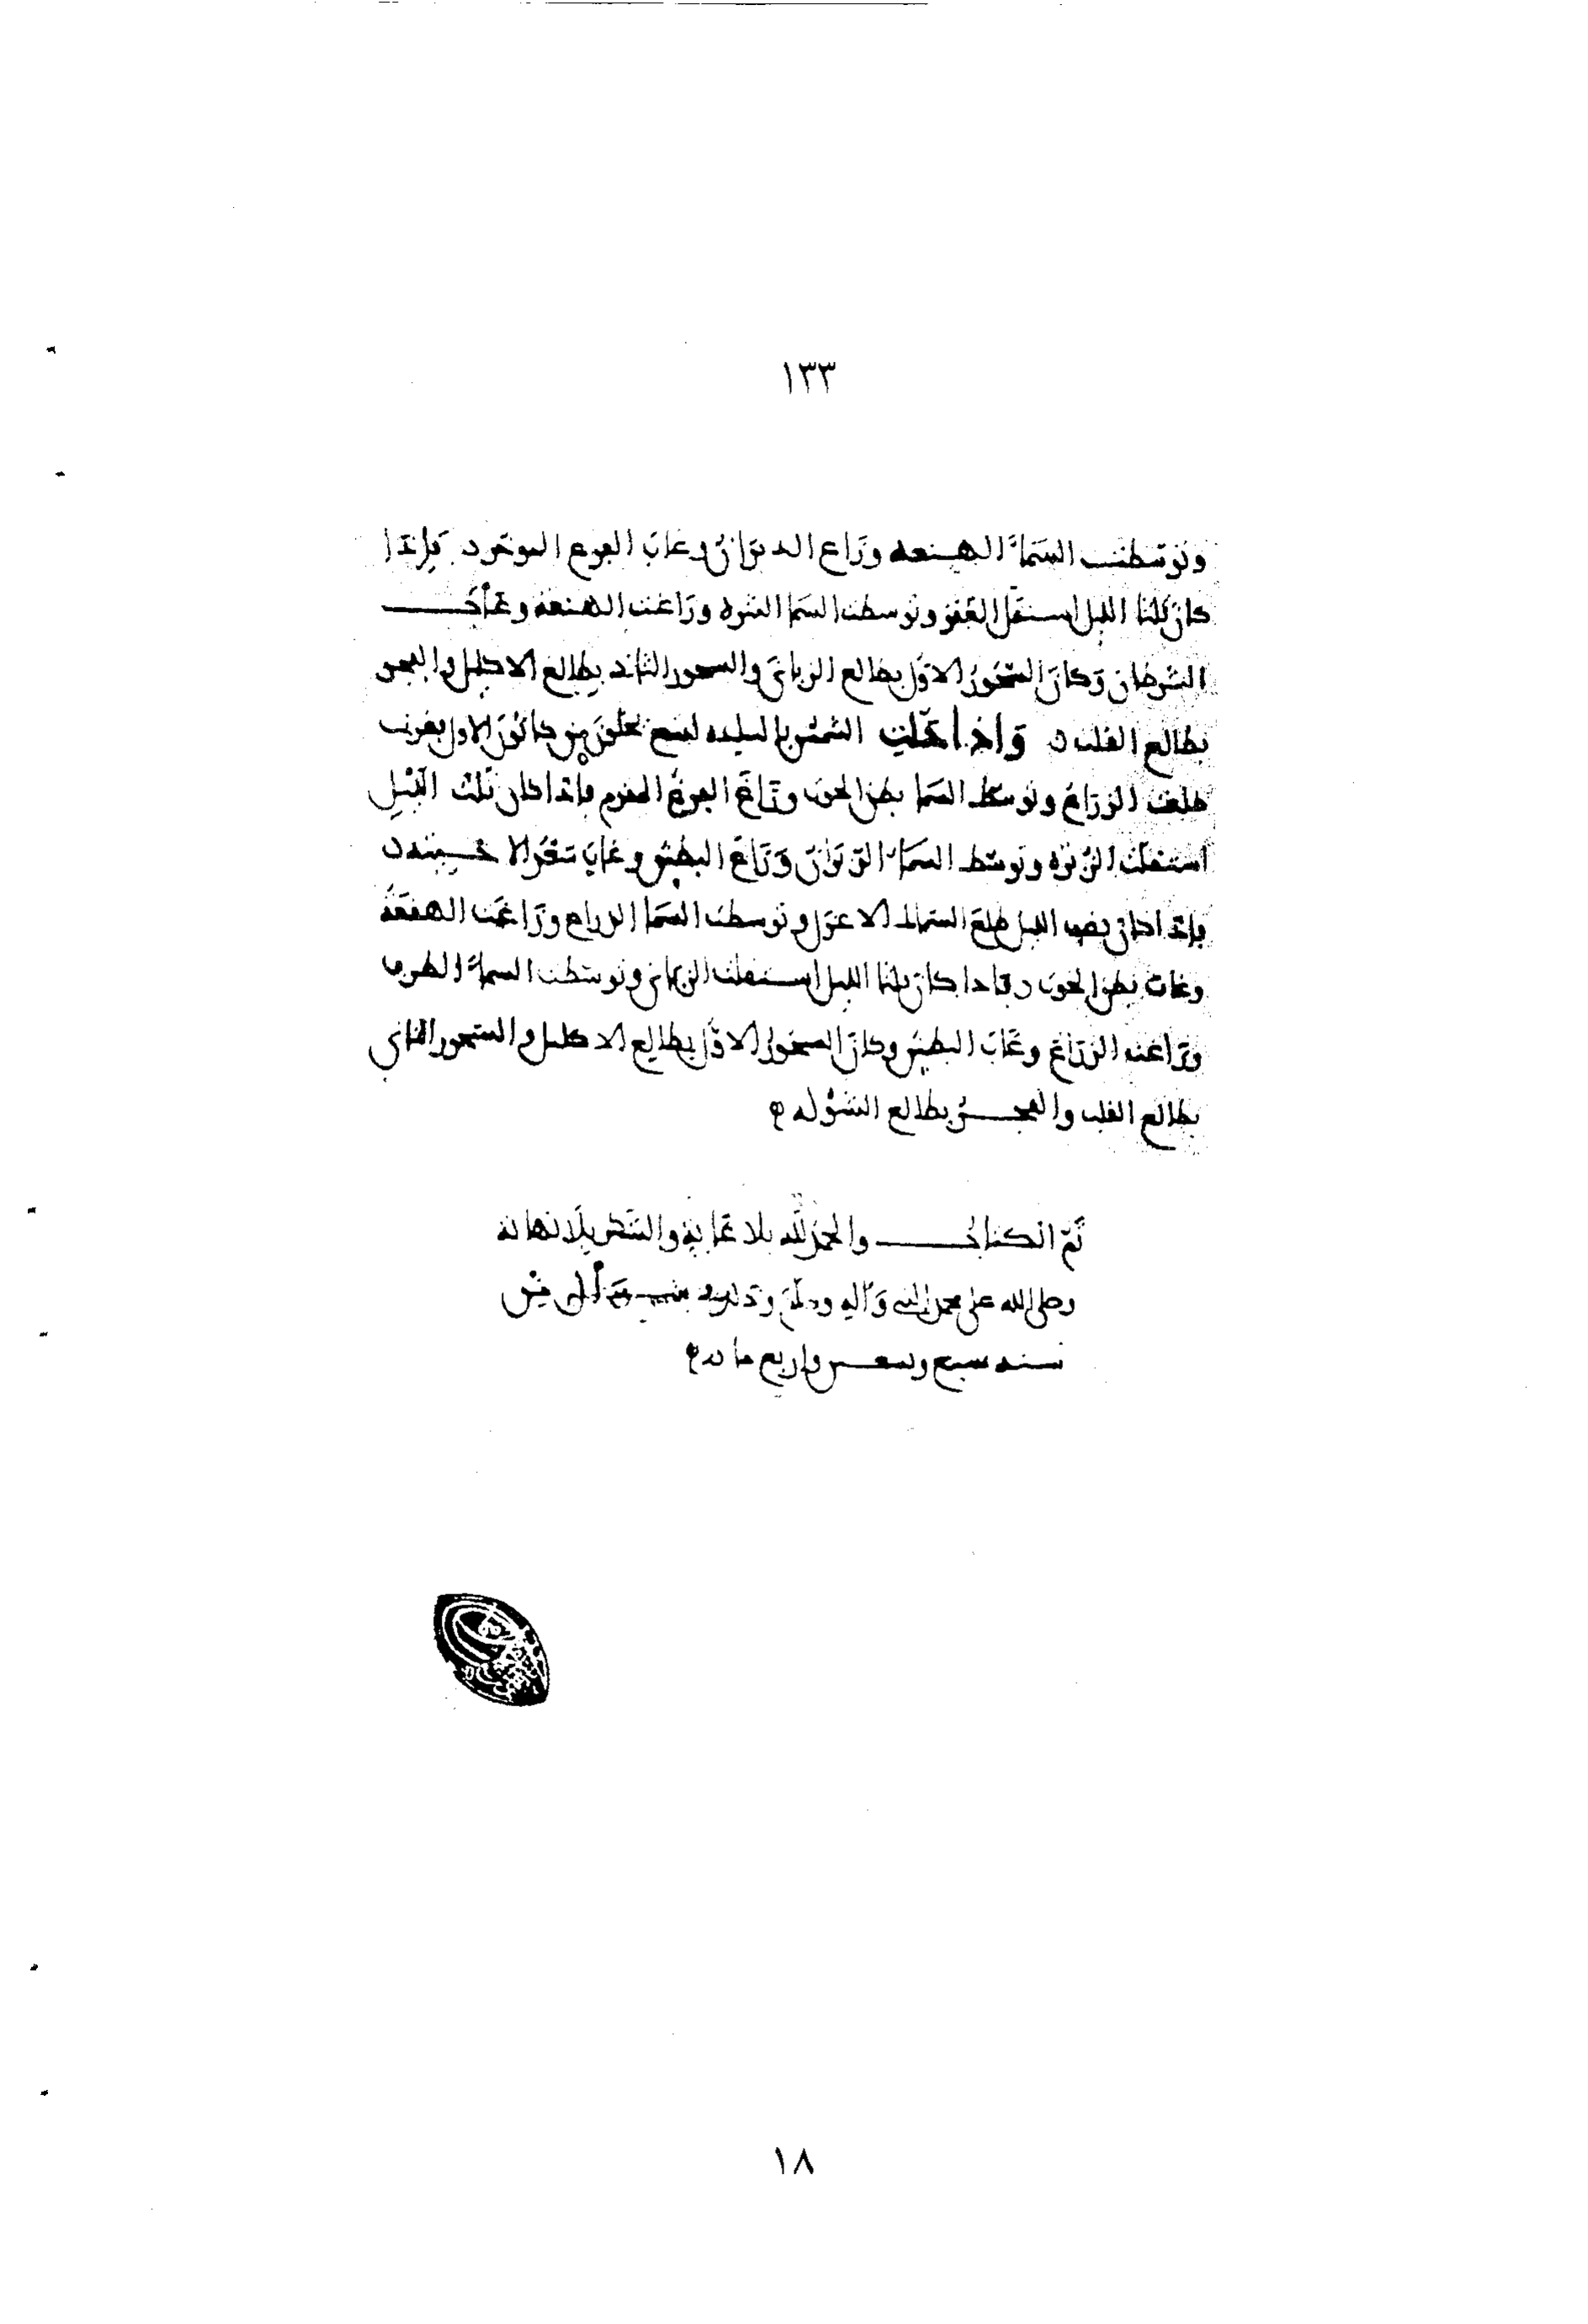 ١٣٣
وتوسطت السماء الهنعه وزاغ الدبران وغاب الفرع الموخر فإذا
كان ثلثا الليل استقل الغفر وتوسطت السما النثره وزاغت الهنعة وغاب
الشرطان وكان السحور الاول بطالع الزبانى والسحور الثاني بطالع الاكليل والفجر
بطالع القلب وإذا حلت الشمس بالبلده لتسع تخلو من كانون الاول بغروب
طلعت الذراع وتوسط السما بطن الحوت وزاغ الفرغ المقدم فإذا كان ثلث الليل
استقلت النثره وتوسط السماء الدبران وزاغ البطين وغاب سعد الاخبيه
فإذا كان نصف الليل طلع السماك الاعزل وتوسطت السما الذراع وزاغت الهقعة
وغاب بطن الحوت فاذا كان ثلثا الليل استقلت الزبانى وتوسطت السماء الطرف
وزاغت الذراع وغاب البطين وكان السحور الاول بطالع الاكليل والسحور الثاني
بطالع القلب والفجر بطالع الشوله
تم الكتاب والحمد لله بلا غاية والشكر بلا نهاية
وصلى الله على محمد النبي وآله وسلم وذلك من
سنه سبع واربع مايه
١٨